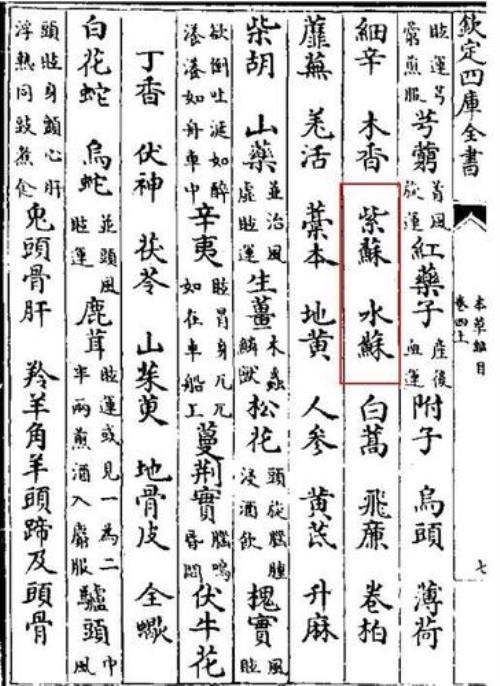 欽定四庫全書
本草綱目
卷四上
七
眩運芎藭煎服 芎藭 首風旋運 紅藥子 產後血運 附子 烏頭 薄荷
細辛 木香 紫蘇 水蘇 白蒿 飛廉 卷柏
蘼蕪 羌活 藁本 地黃 人參 黃芪 升麻
柴胡 山藥 並治風虛眩運 生薑 木蟲鱗獸 松花 頭旋腦腫浸酒飲 槐實 風眩
欲倒吐涎如醉漾漾如舟車中 辛夷 眩冒身兀兀如在車船上 蔓荊實 腦鳴昏悶 伏牛花
丁香 伏神 茯苓 山茱萸 地骨皮 全蠍
白花蛇 烏蛇 並頭風眩運 鹿茸 眩運或見一為二半兩煎酒入麝服 驢頭 中風
頭眩身顫心肝浮熱同豉煮食 兔頭骨肝 羚羊角羊頭蹄及頭骨